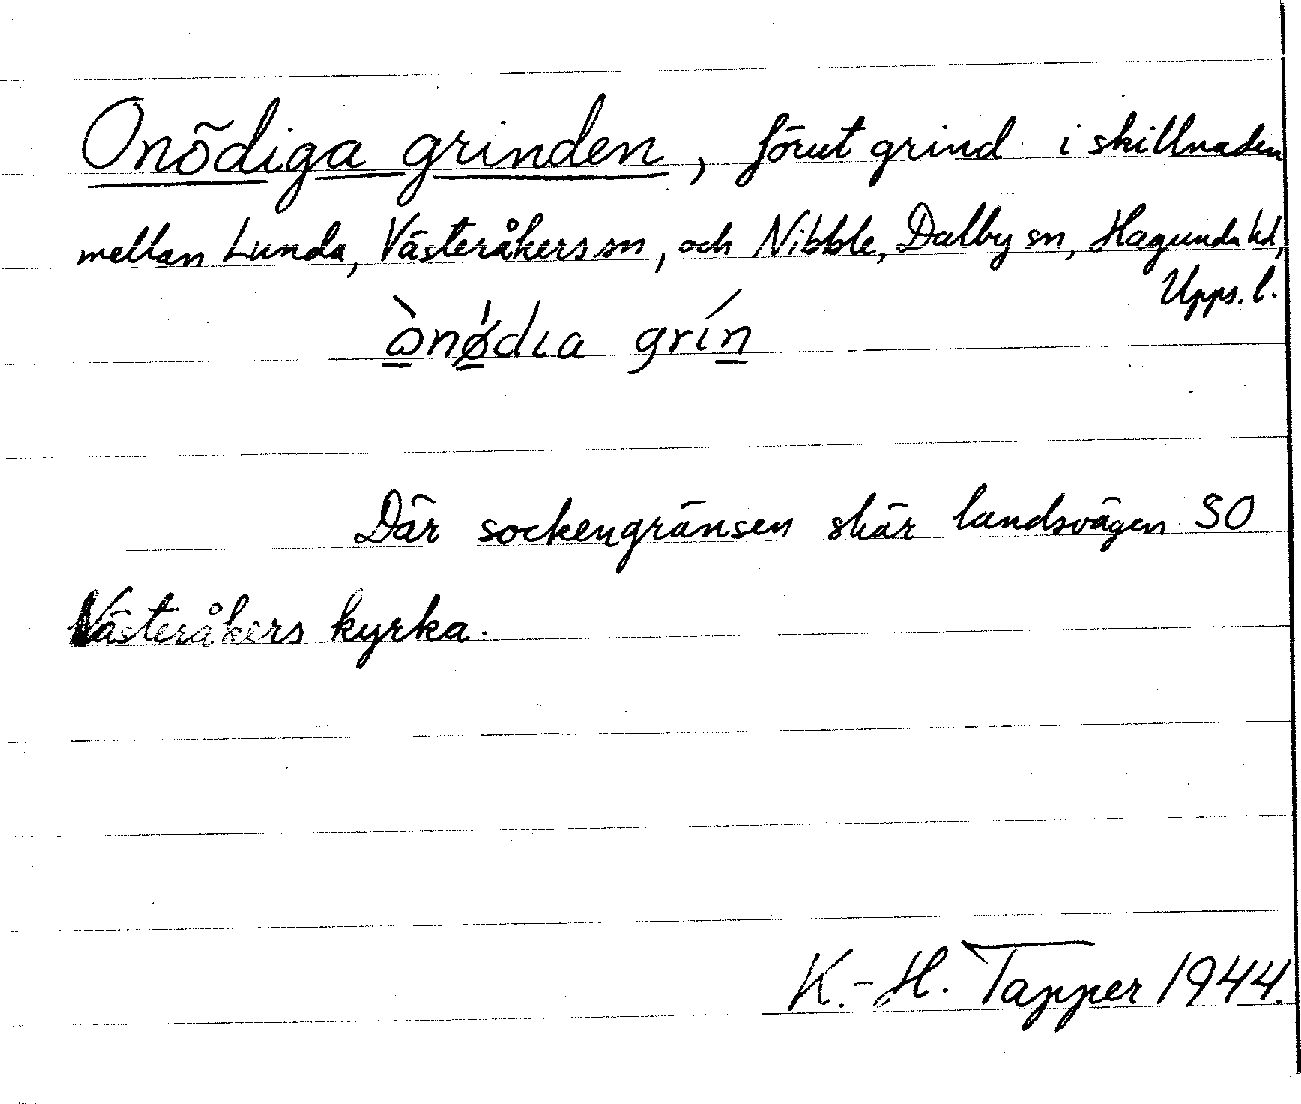 Onödiga grinden, förut grind i skillnaden
mellan Lunda, Västeråkers sn, och Nibble, Dalby sn, Hagunda hd,
Upps. l.
ònǿdıa grín
Där sockengränsen skär landsvägen SO
Västeråkers kyrka.
K.-H. Tapper 1944.